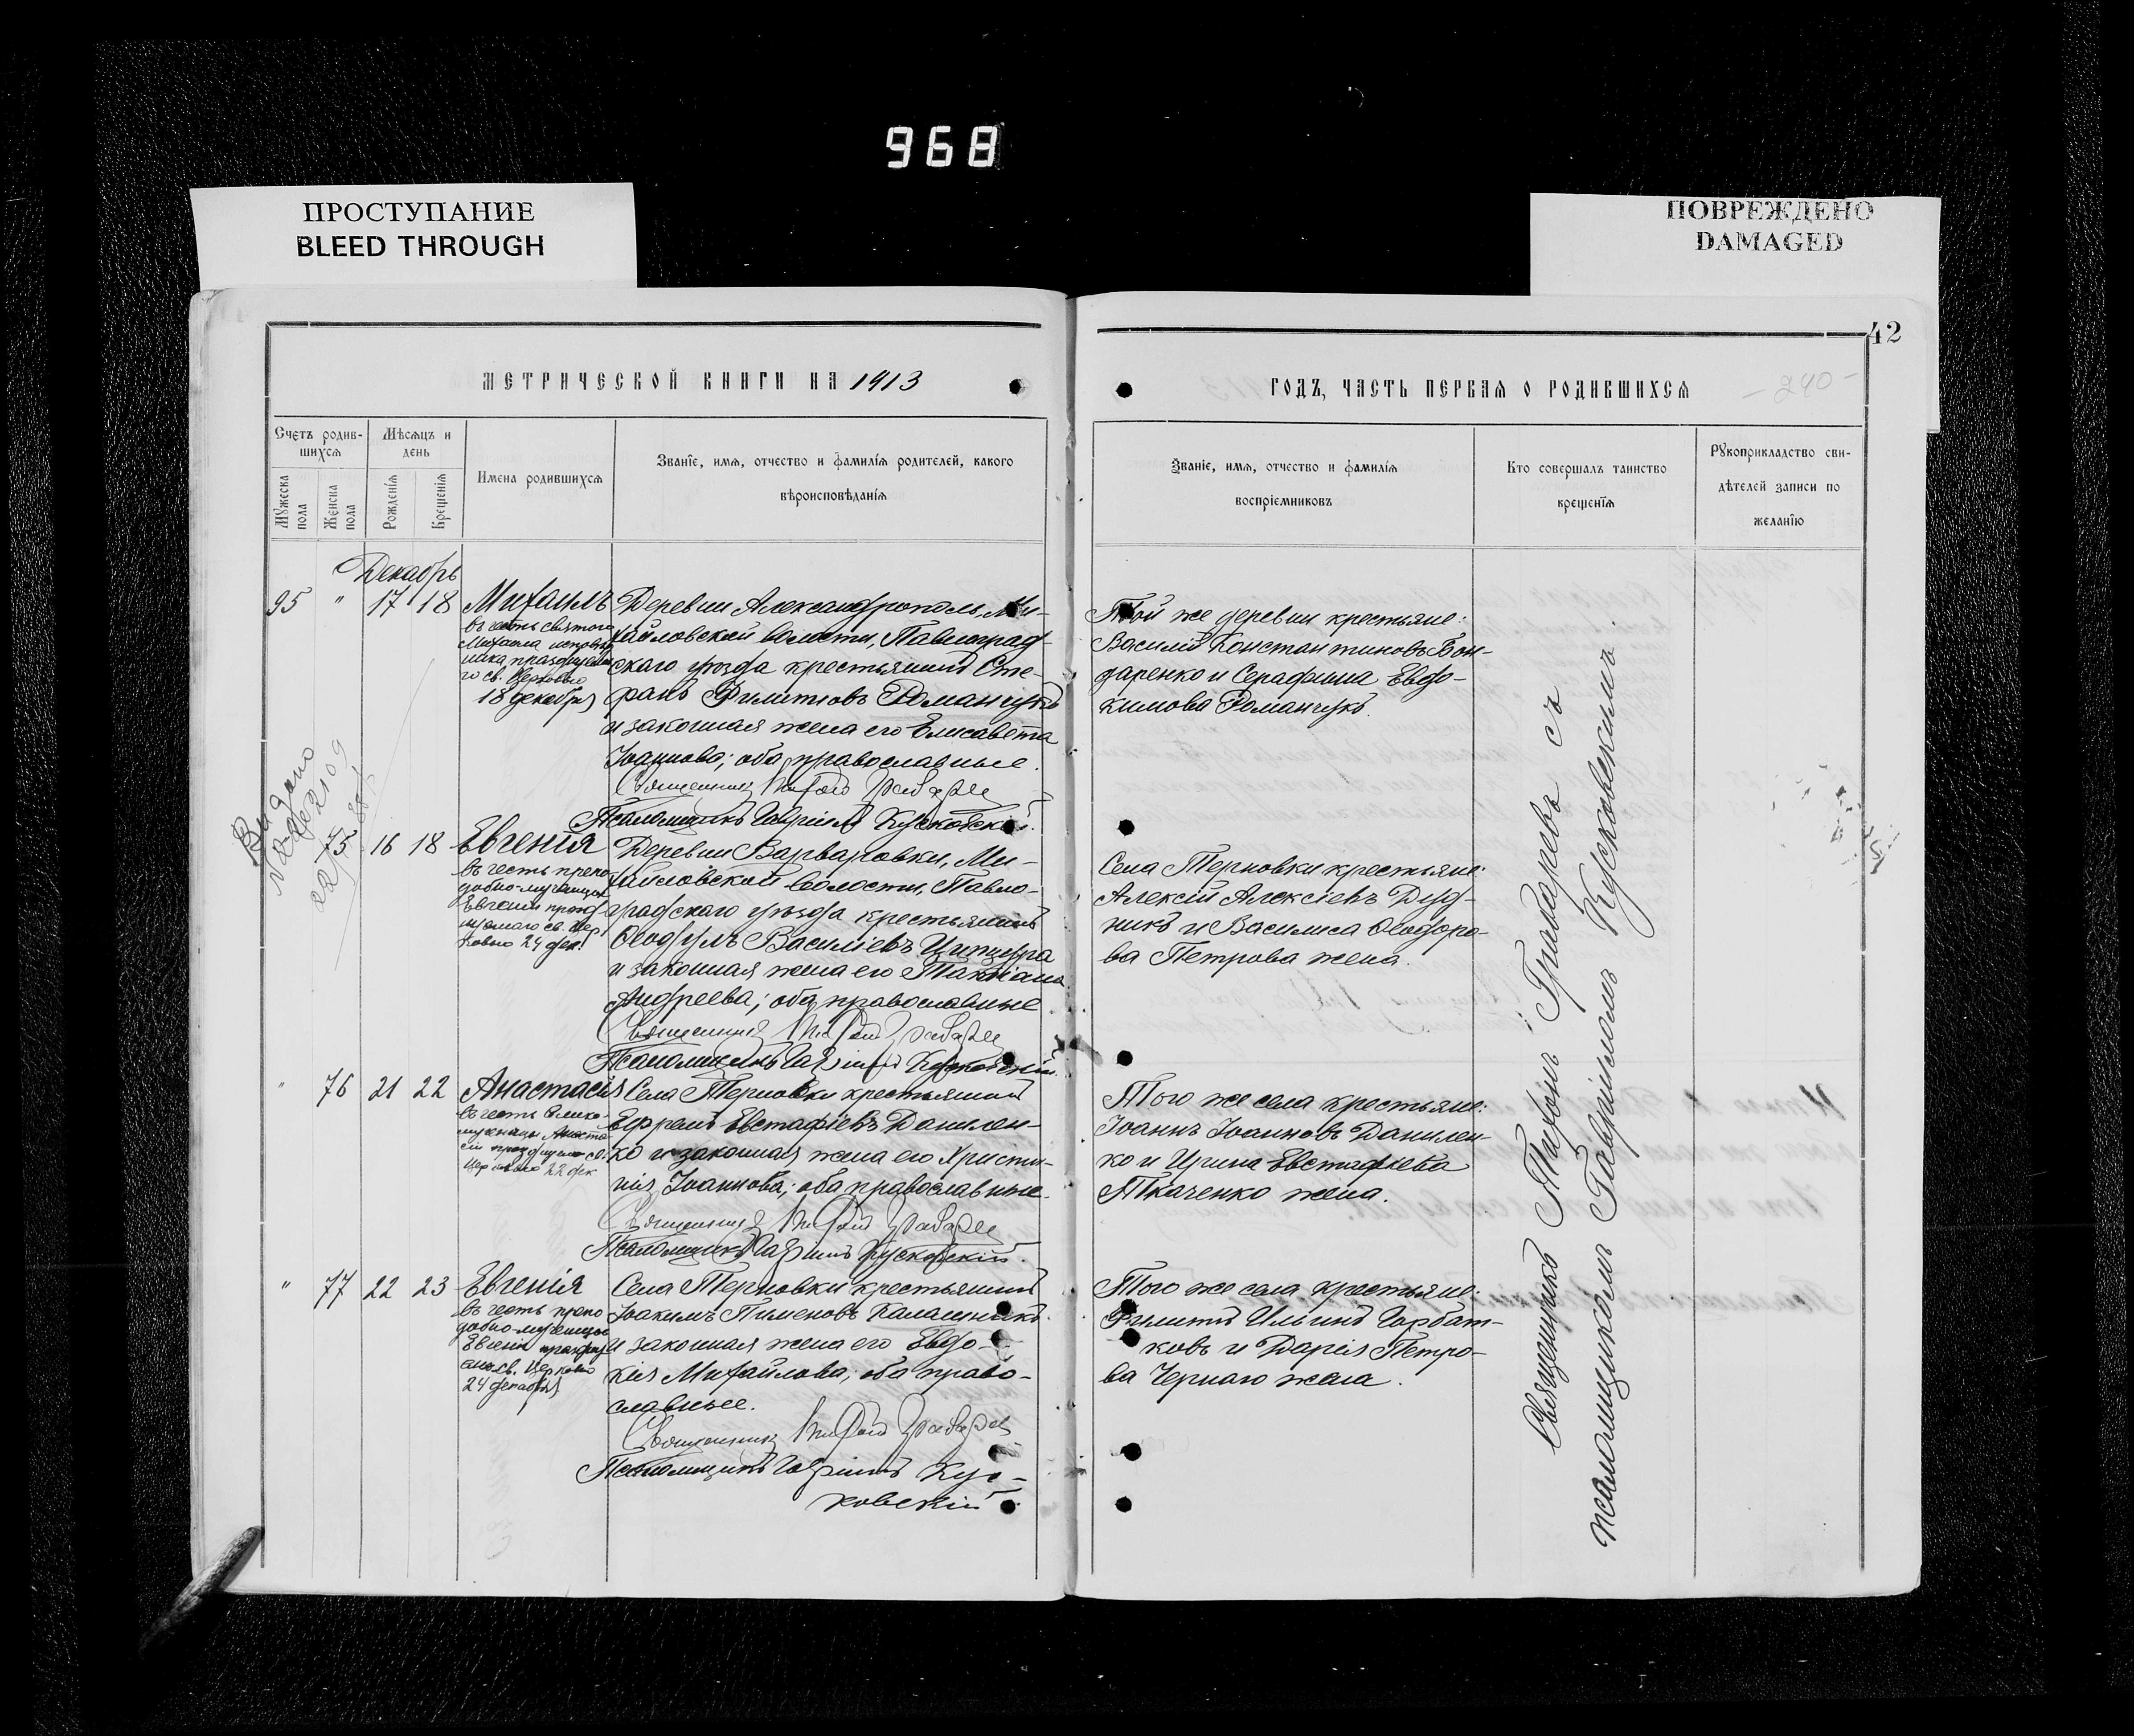 968
ПРОСТУПАНИЕ
BLEED THROUGH
ПОВРЕЖДЕНО
DAMAGED
42
МЕТРИЧЕСКОЙ КНИГИ НА 1913
ГОДЪ, ЧАСТЬ ПЕРВАЯ О РОДИВШИХСЯ
- 240 -
Счетъ родив-
шихся
Мужеска пола
Женска пола
Мѣсяцъ и
день
Рожденія
Крещенія
Имена родившихся
Званіе, имя, отчество и фамилія родителей, какого
вѣроисповѣданія
Званіе, имя, отчество и фамилія
воспріемниковъ
Кто совершалъ таинство
крещенія
Рукоприкладство сви-
дѣтелей записи по
желанію
Декабрь
95 " 17 18 Михаилъ
въ честь святого
Михаила исповѣд
ника, празднуема
го св. Церковью
18 декабря
Деревни Александрополь, Ми-
хайловской волости, Павлоград-
скаго уѣзда крестьянинъ Сте-
фанъ Филипповъ Романчукъ
и законная жена его Елисавета
Іоаннова; оба православные.
Священникъ Тифонъ Граваревъ
Псаломщикъ Гавріилъ Кусковскій.
Той же деревни крестьяне:
Василій Константиновъ Бон-
даренко и Серафима Евдо-
кимова Романчукъ.
Выдано
75 16 18 Евгенія
въ честь препо
добно-мученицы
Евгеніи празд
нуемаго св. Цер
ковью 24 дек.
Деревни Варваровки, Ми-
хайловской волости, Павло-
градскаго уѣзда крестьянинъ
Ѳеодулъ Василіевъ Ципцюра
и законная жена его Татіана
Андреева; оба православные
Священникъ Тифонъ Граваревъ
Псаломщикъ Гавріилъ Кусковскій.
Села Терновки крестьяне:
Алексій Алексіевъ Дуд-
никъ и Василиса Ѳеодоро-
ва Петрова жена.
" 76 21 22 Анастасія
въ честь велико-
мученицы Анаста
сіи празднуемо св.
Церковью 22 дек
Села Терновки крестьянинъ
Ефремъ Евстафіевъ Данилен-
ко и законная жена его Христи-
нія Іоаннова; оба православные.
Священникъ Тифонъ Граваревъ
Псаломщикъ Гавріилъ Кусковскій.
Того же села крестьяне:
Іоаннъ Іоанновъ Данилен-
ко и Ирина Евстафіева
Ткаченко жена.
" 77 22 23 Евгенія
въ честь препо
добно-мученицы
Евгеніи празднуе
маго св. Церковью
24 декабря
Села Терновки крестьянинъ
Іоакимъ Пименовъ Калашникъ
и законная жена его Евдо-
кія Михайлова; оба право-
славные.
Священникъ Тифонъ Граваревъ
Псаломщикъ Гавріилъ Кус-
ковскій
Того же села крестьяне:
Филиппъ Ильинъ Горбат-
ковъ и Дарія Петро-
ва Чернаго жена.
Священникъ Тифонъ Граваревъ съ
псаломщикомъ Гавріиломъ Кусковскимъ.